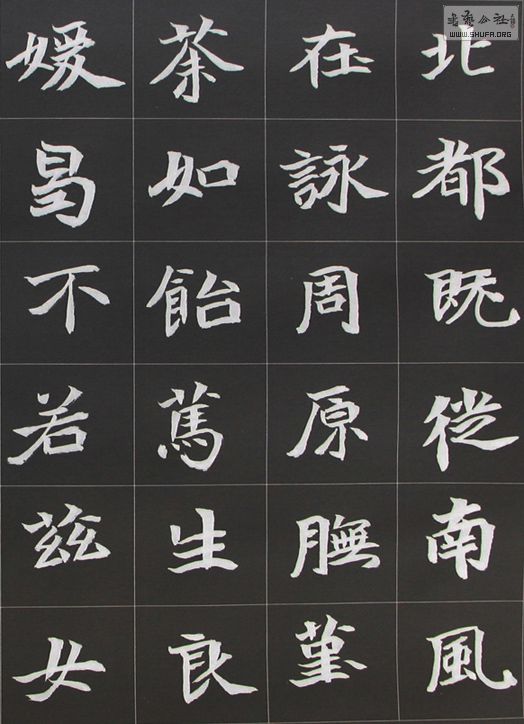 北都既從南風
在詠周原膴菫
荼如飴篤生良
媛曷不若茲女
书艺公社
WWW.SHUFA.ORG